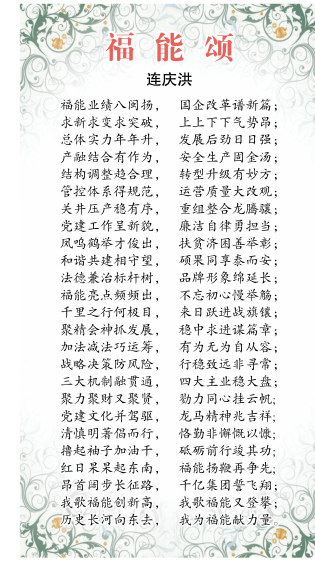 福能颂
连庆洪
福能业绩八闽扬， 国企改革谱新篇；
求新求变求突破， 上上下下气势昂；
总体实力年年升， 发展后劲日日强；
产融结合有作为， 安全生产固金汤；
结构调整趋合理， 转型升级有妙方；
管控体系得规范， 运营质量大改观；
关井压产稳有序， 重组整合龙腾骧；
党建工作呈新貌， 廉洁自律勇担当；
凤鸣鹤举才俊出， 扶贫济困善举彰；
和谐共建相守望， 硕果同享泰而安；
法德兼治标杆树， 品牌形象绵延长；
福能亮点频频出， 不忘初心慢举觞；
千里之行何极目， 来日跃进战旗镶；
聚精会神抓发展， 稳中求进谋篇章；
加法减法巧运筹， 有为无为自从容；
战略决策防风险， 行稳致远非寻常；
三大机制融贯通， 四大主业稳大盘；
聚力聚财又聚贤， 勠力同心挂云帆；
党建文化并驾驱， 龙马精神兆吉祥；
清慎明著倡而行， 恪勤非懈慨以慷；
撸起袖子加油干， 砥砺前行竣其功；
红日杲杲起东南， 福能扬鞭再争先；
昂首阔步长征路， 千亿集团誓飞翔；
我歌福能创新高， 我歌福能又登攀；
历史长河向东去， 我为福能献力量。